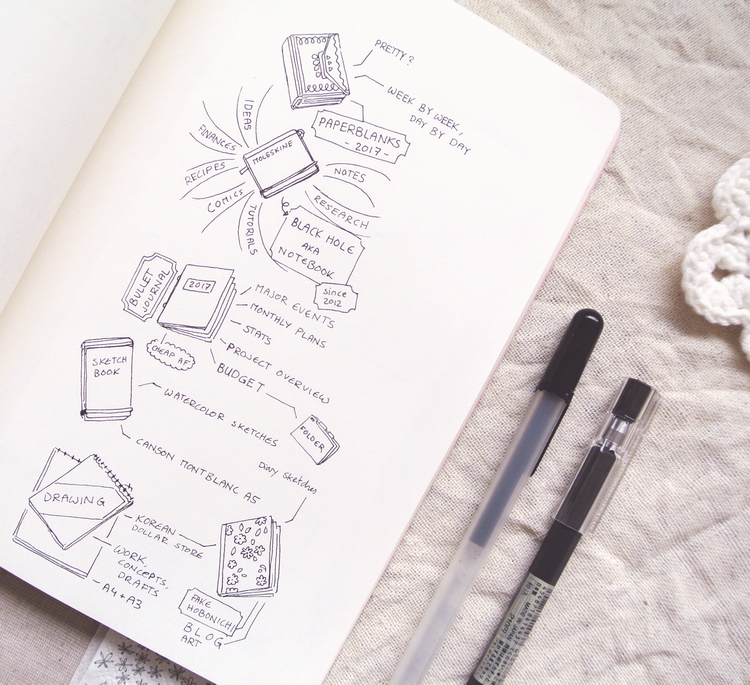 PRETTY?
WEEK BY WEEK,
DAY BY DAY
PAPERBLANKS
- 2017 -
IDEAS
FINANCES
RECIPES
COMICS
TUTORIALS
MOLESKINE
NOTES
RESEARCH
BLACK HOLE
AKA
NOTEBOOK
since
2012
BULLET
JOURNAL
2017
CHEAP AF
MAJOR EVENTS
MONTHLY PLANS
STATS
PROJECT OVERVIEW
BUDGET
FOLDER
SKETCH
BOOK
WATERCOLOR SKETCHES
CANSON MONTBLANC A5
Diary sketches
DRAWING
KOREAN
DOLLAR STORE
WORK,
CONCEPTS,
DRAFTS
A4 + A3
FAKE
HOBONICHI
BLOG
ART